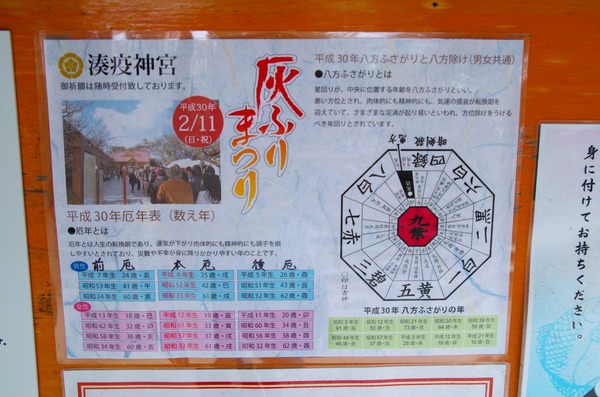 湊疫神宮
御祈願は随時受付致しております。
平成30年
2/11
(日・祝)
灰ふり
まつり
平成30年厄年表（数え年）
●厄年とは
厄年とは人生の転換期であり、運気が下がり肉体的にも精神的にも調子を崩
しやすいとされており、災難や不幸が身に降りかかりやすい年のことです。
男性 前厄 本厄 後厄
平成7年生 24歳・亥 平成6年生 25歳・戌 平成5年生 26歳・酉
昭和53年生 41歳・午 昭和52年生 42歳・巳 昭和51年生 43歳・辰
昭和34年生 60歳・亥 昭和33年生 61歳・戌 昭和32年生 62歳・酉
女性
平成13年生 18歳・巳 平成12年生 19歳・辰 平成11年生 20歳・卯
昭和62年生 32歳・卯 昭和61年生 33歳・寅 昭和60年生 34歳・丑
昭和58年生 36歳・亥 昭和57年生 37歳・戌 昭和56年生 38歳・酉
昭和34年生 60歳・亥 昭和33年生 61歳・戌 昭和32年生 62歳・酉
平成30年八方ふさがりと八方除け（男女共通）
●八方ふさがりとは
星回りが、中央に位置する年齢を八方ふさがりといい、
悪い方位とされ、肉体的にも精神的にも、気運の盛衰が転換期を
迎えていて、さまざまな災渦が起り易いといわれ、方位除けをうける
べき年回りとされています。
暗剣殺
恵方
四緑
六白
二黒
一白
五黄
三碧
七赤
八白
九紫
○印は吉神
平成30年 八方ふさがりの年
昭和3年生 昭和12年生 昭和21年生 昭和30年生 昭和39年生
91歳・辰 82歳・丑 73歳・戌 64歳・未 55歳・辰
昭和48年生 昭和57年生 平成3年生 平成12年生 平成21年生
46歳・丑 37歳・戌 28歳・未 19歳・辰 10歳・丑
身に付けてお持ちください。
す。